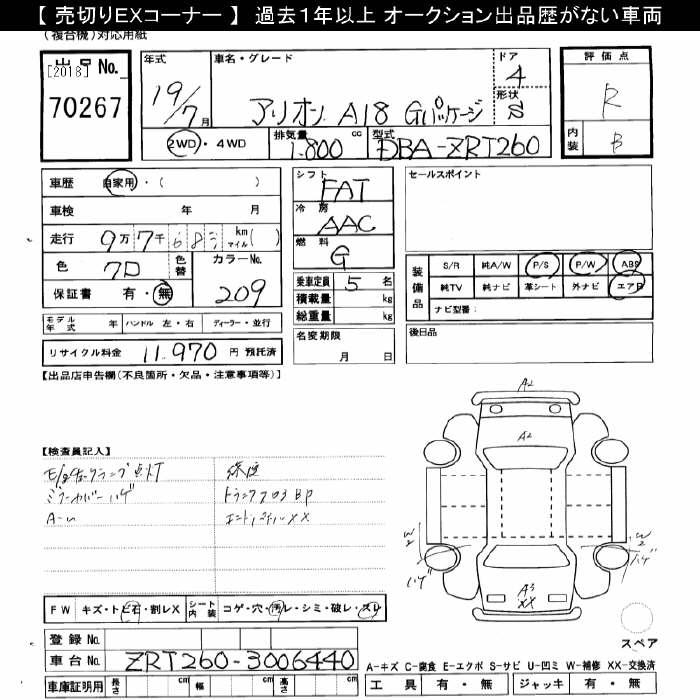 【 売切りEXコーナー 】 過去1年以上 オークション出品歴がない車両
(複合機)対応用紙
出品 No.
[2018]
70267
年式
19/7月
車名・グレード
アリオン A18 Gパッケージ
ドア
4
形状
S
2WD・4WD
排気量 1.800 cc
型式 DBA-ZRT260
評価点
R
内装
B
車歴 自家用・( )
車検 年 月
走行 9万7千68 km マイル( )
色 クロ 色替 カラーNo. 209
保証書 有・無
モデル年式 年 ハンドル 左・右 ディーラー・並行
リサイクル料金 11,970 円 預託済
シフト
FAT
冷房
AAC
燃料
G
乗車定員 5 名
積載量 kg
総重量 kg
名変期限
月 日
セールスポイント
装備品
S/R 純A/W P/S P/W ABS
純TV 純ナビ 革シート 外ナビ エアB
ナビ型番:
後日品
【出品店申告欄(不良箇所・欠品・注意事項等)】
【検査員記入】
ミラーカバー ハゲ
A-U
修復
A2
A2
W2
ハゲ
W2
ハゲ
A3
XX
FW キズ・トビ石・割レX シート内装 コゲ・穴・汚レ・シミ・破レ・スレ
登録 No.
車台 No. ZRT260-3006440
車庫証明用 長さ cm 幅 cm 高さ cm
スペア
A-キズ C-腐食 E-エクボ S-サビ U-凹ミ W-補修 XX-交換済
工具 有・無 ジャッキ 有・無